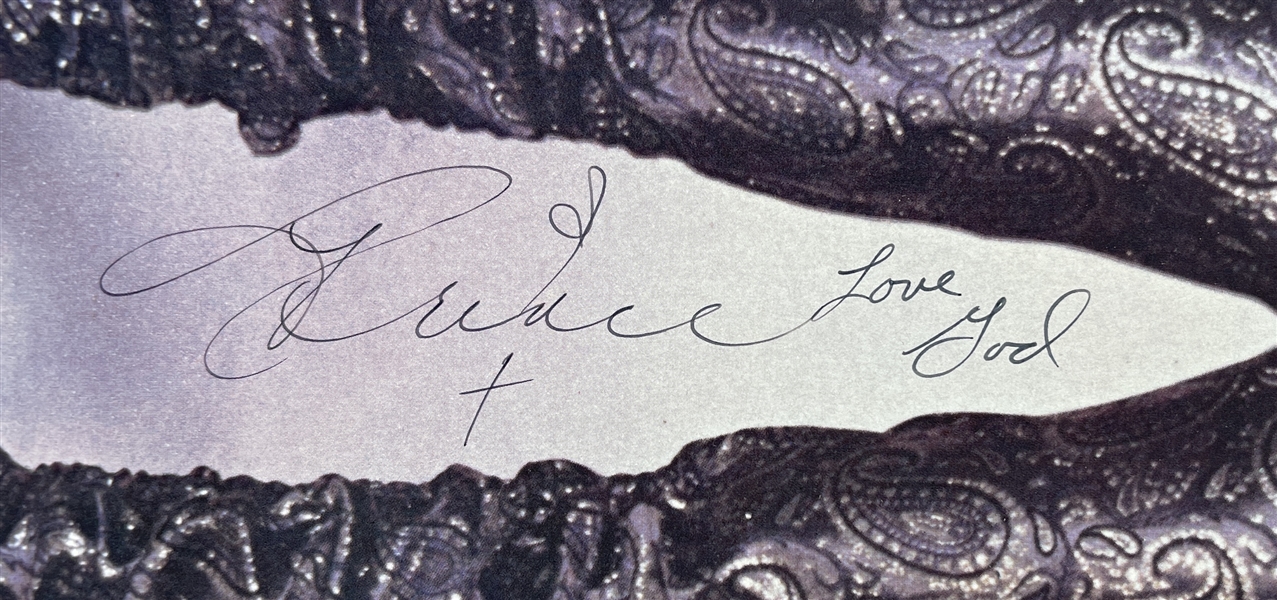 Prince Love
God